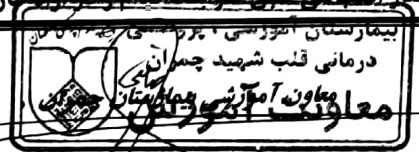 بیمارستان آموزشی ، پژوهشی
درمانی قلب شهید چمران
معاون آموزشی بیمارستان
معاونت آموزش